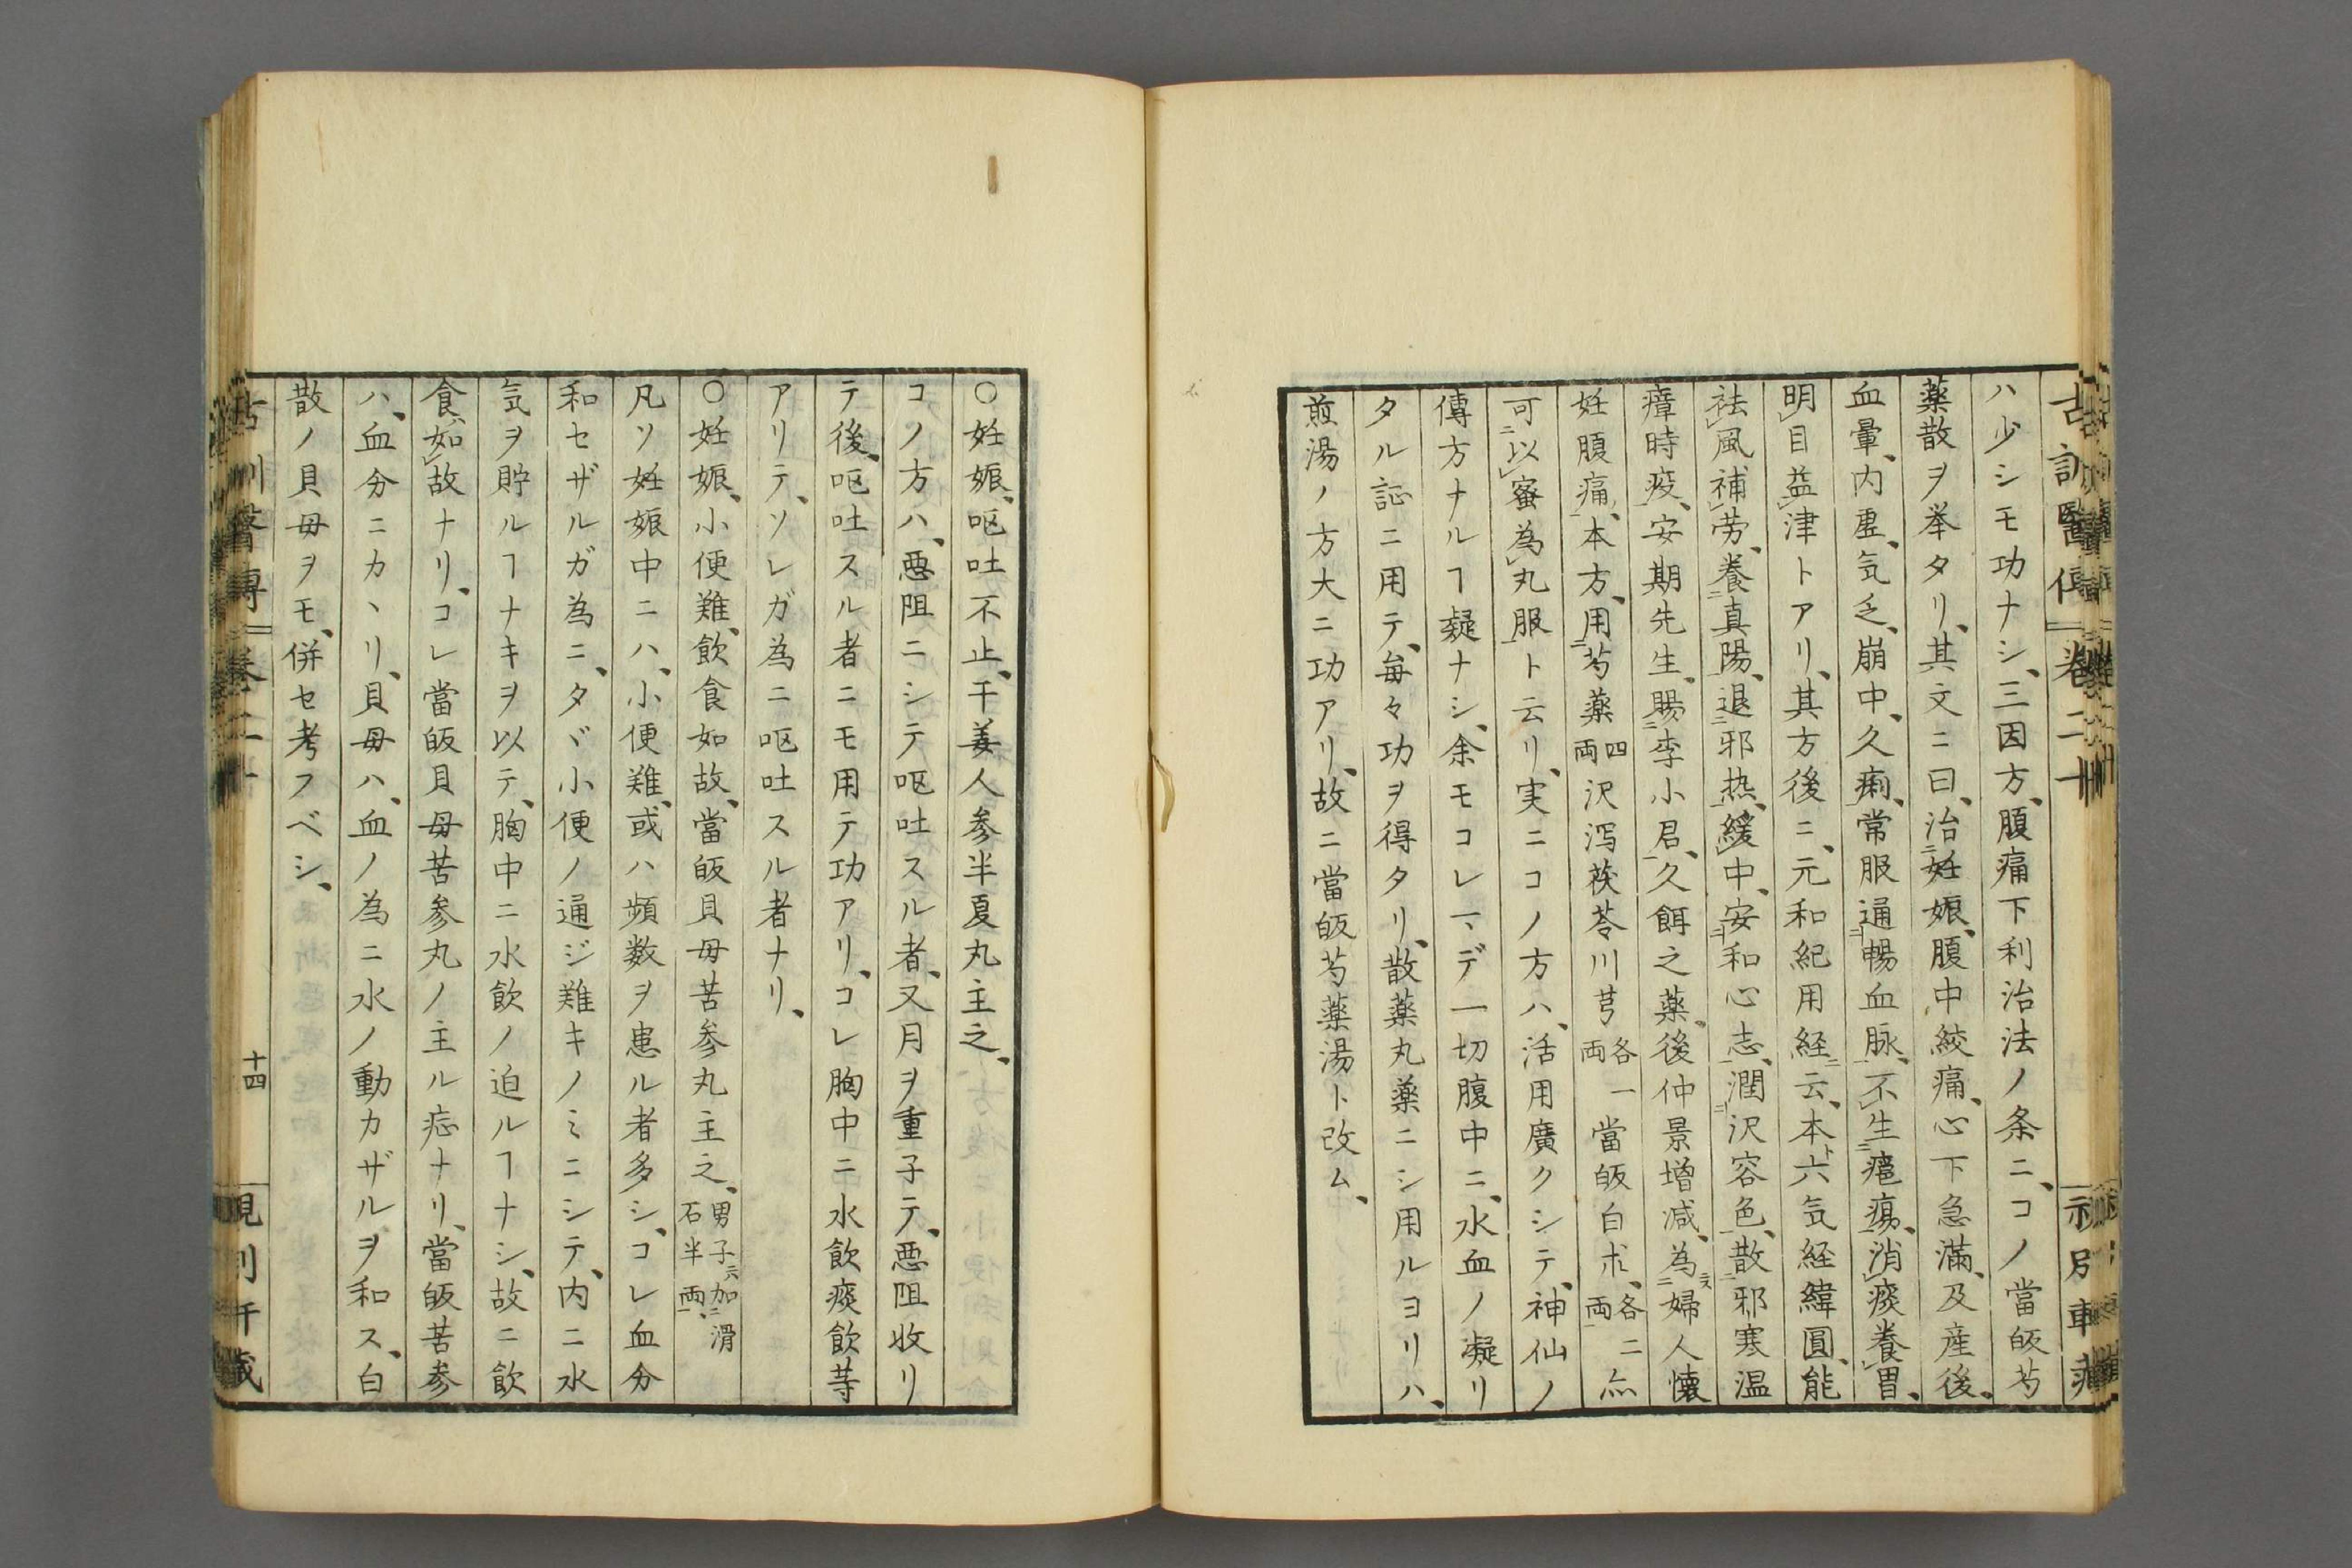 古訓醫傳 巻二十
ハ少シモ功ナシ、三因方、腹痛下利治法ノ条ニ、コノ當皈芍
薬散ヲ挙タリ、其文ニ曰、治二妊娠、腹中㽲痛、心下急満、及産後、
血暈、内虚、気乏、崩中、久痢、常服通二暢血脉、不レ生二癰瘍、消レ痰養レ胃、
明レ目益レ津トアリ、其方後ニ、元和紀用経ニ云、本ト六気経緯圓、能
袪レ風補レ労、養二真陽、退二邪热、緩レ中、安二和心志、潤二沢容色、散二邪寒温
瘴時疫、安期先生、賜二李小君一、久餌之薬、後仲景増減、為二婦人懐
妊腹痛一、本方、用二芍薬四両沢泻茯苓川芎各一両當皈白朮、各二両亦
可二以レ蜜為レ丸服一ト云リ、実ニコノ方ハ、活用廣クシテ、神仙ノ
傳方ナルヿ疑ナシ、余モコレマデ一切腹中ニ、水血ノ凝リ
タル証ニ用テ、毎々功ヲ得タリ、散薬丸薬ニシ用ルヨリハ、
煎湯ノ方大ニ功アリ、故ニ當皈芍薬湯ト改ム、
○妊娠、呕吐不止、干姜人参半夏丸主之、
コノ方ハ、悪阻ニシテ呕吐スル者、又月ヲ重子テ、悪阻收リ
テ後、呕吐スル者ニモ用テ功アリ、コレ胸中ニ水飲痰飲䓁
アリテ、ソレガ為ニ呕吐スル者ナリ、
○妊娠、小便難、飲食如故、當皈貝母苦参丸主之、男子ニハ加二滑石半両一、
凡ソ妊娠中ニハ、小便難、或ハ頻数ヲ患ル者多シ、コレ血分
和セザルガ為ニ、タヾ小便ノ通ジ難キノミニシテ、内ニ水
気ヲ貯ルヿナキヲ以テ、胸中ニ水飲ノ迫ルヿナシ、故ニ飲
食、如レ故ナリ、コレ當皈貝母苦参丸ノ主ル症ナリ、當皈苦参
ハ、血分ニカヽリ、貝母ハ、血ノ為ニ水ノ動カザルヲ和ス、白
散ノ貝母ヲモ、併セ考フベシ、
十四